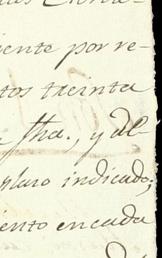 iente por re-
tos treinta
fha., y al-
plazo indicado;
iento encada